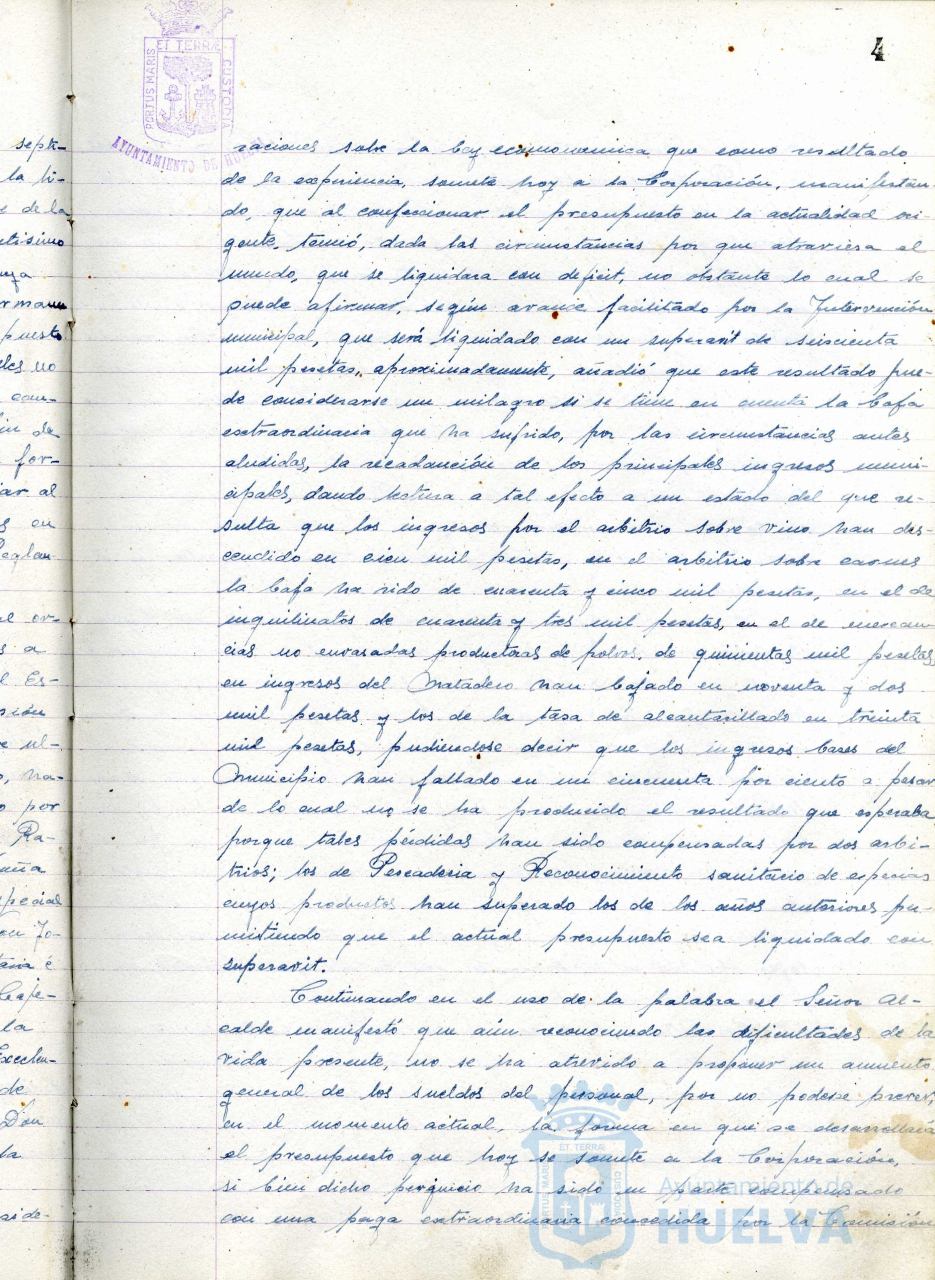 4
PORTUS MARIS
ET TERRÆ
CUSTODIA
AYUNTAMIENTO DE HUELVA
raciones sobre la Ley economomica que como resultado
de la experiencia, somete hoy a la Corporación, manifestan-
do, que al confeccionar el presupuesto en la actualidad vi-
gente, temió, dada las circunstancias por que atraviesa el
mundo, que se liquidara con deficit, no obstante lo cual se
puede afirmar, según avance facilitado por la Intervención
municipal, que será liquidado con un superavit de seiscienta
mil pesetas, aproximadamente, añadió que este resultado pue-
de considerarse un milagro si se tiene en cuenta la baja
extraordinaria que ha sufrido, por las circunstancias antes
aludidas, la recaudanción de los principales ingresos muni-
cipales, dando lectura a tal efecto a un estado del que re-
sulta que los ingresos por el arbitrio sobre vino han des-
cendido en cien mil pesetas, en el arbitrio sobre carnes
la baja ha sido de cuarenta y cinco mil pesetas, en el de
inquilinatos de cuarenta y tres mil pesetas, en el de mercan-
cias no envasadas productoras de polvos, de quinientas mil pesetas,
en ingresos del Matadero han bajado en noventa y dos
mil pesetas y los de la tasa de alcantarillado en treinta
mil pesetas, pudiendose decir que los ingresos bases del
Municipio han fallado en un cincuenta por ciento a pesar
de lo cual no se ha producido el resultado que esperaba,
porque tales pérdidas han sido compensadas por dos arbi-
trios; los de Pescaderia y Reconocimiento sanitario de especias
cuyos productos han superado los de los años anteriores per-
mitiendo que el actual presupuesto sea liquidado con
superavit.
Continuando en el uso de la palabra el Señor Al-
calde manifestó que aún reconociendo las dificultades de la
vida presente, no se ha atrevido a proponer un aumento
general de los sueldos del personal, por no poderse prever,
en el momento actual, la forma en que se desarrollaria
el presupuesto que hoy se somete a la Corporación,
si bien dicho perjuicio ha sido en parte compensado
con una paga extraordinaria concedida por la Comisión
ET TERRÆ
Ayuntamiento de
HUELVA